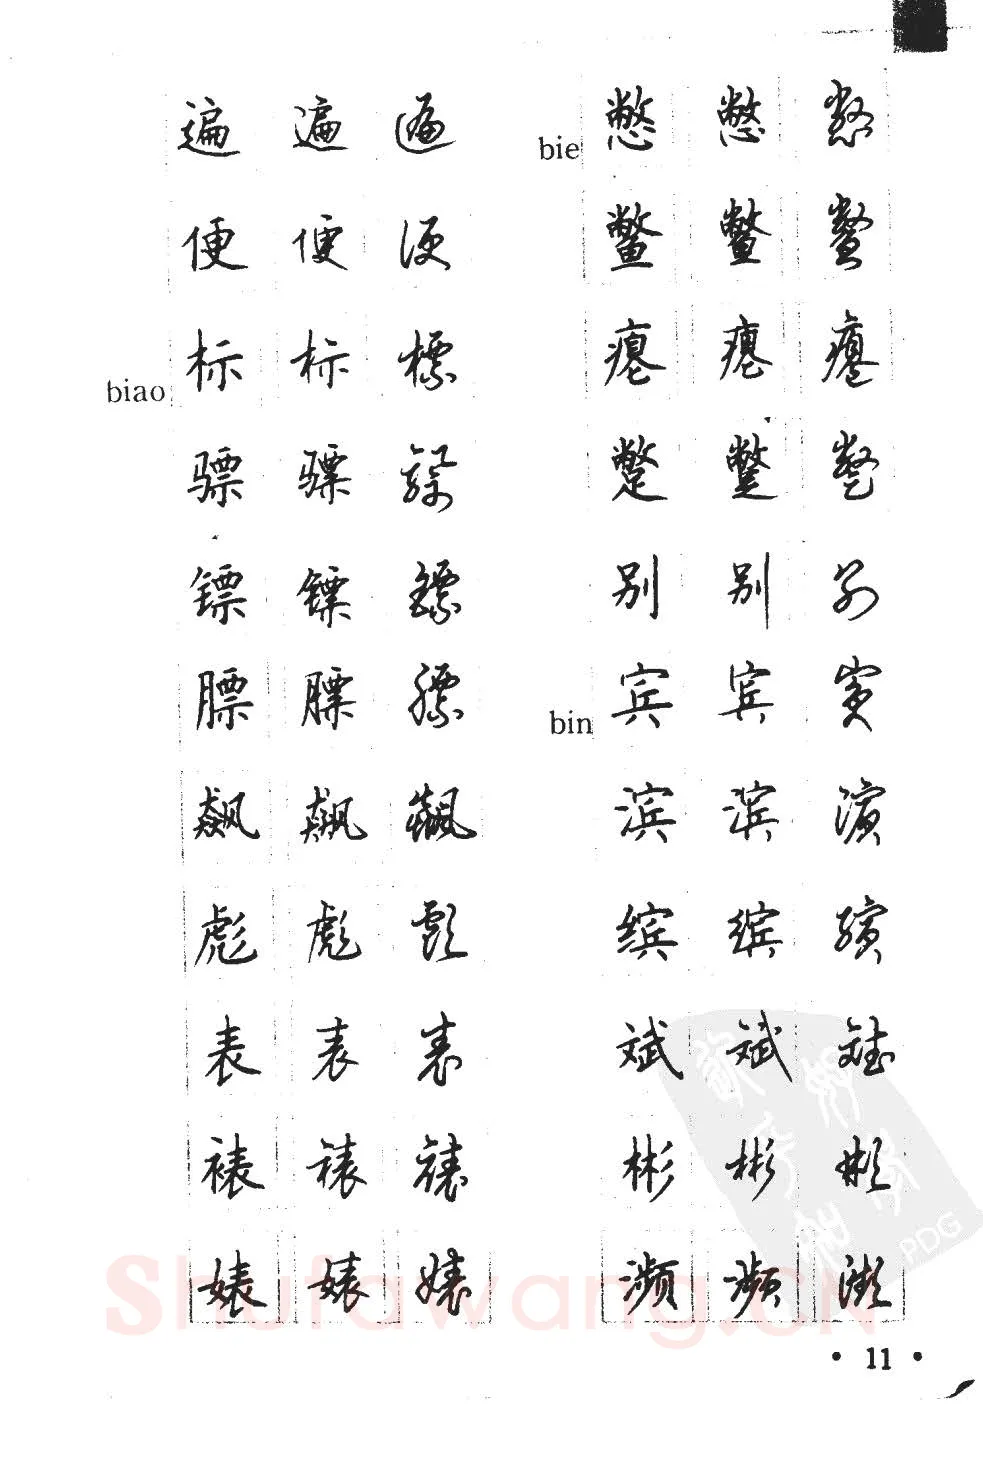 遍 遍 遍
便 便 便
biao 标 标 標
骠 骠 驃
镖 镖 鏢
膘 膘 膘
飙 飙 飆
彪 彪 彪
表 表 表
裱 裱 裱
婊 婊 婊
bie 憋 憋 憋
鳖 鳖 鱉
瘪 瘪 癟
蹩 蹩 蹩
别 别 别
bin 宾 宾 賓
滨 滨 濱
缤 缤 繽
斌 斌 斌
彬 彬 彬
濒 濒 瀕
Shufawang.CN
PDG
· 11 ·